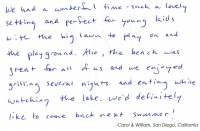 We had a wonderful time - such a lovely
setting and perfect for young kids
with the big lawn to play on and
the playground. Also, the beach was
great for all of us and we enjoyed
grilling several nights and eating while
watching the lake. We'd definitely
like to come back next summer!
-Carol & William, San Diego, California